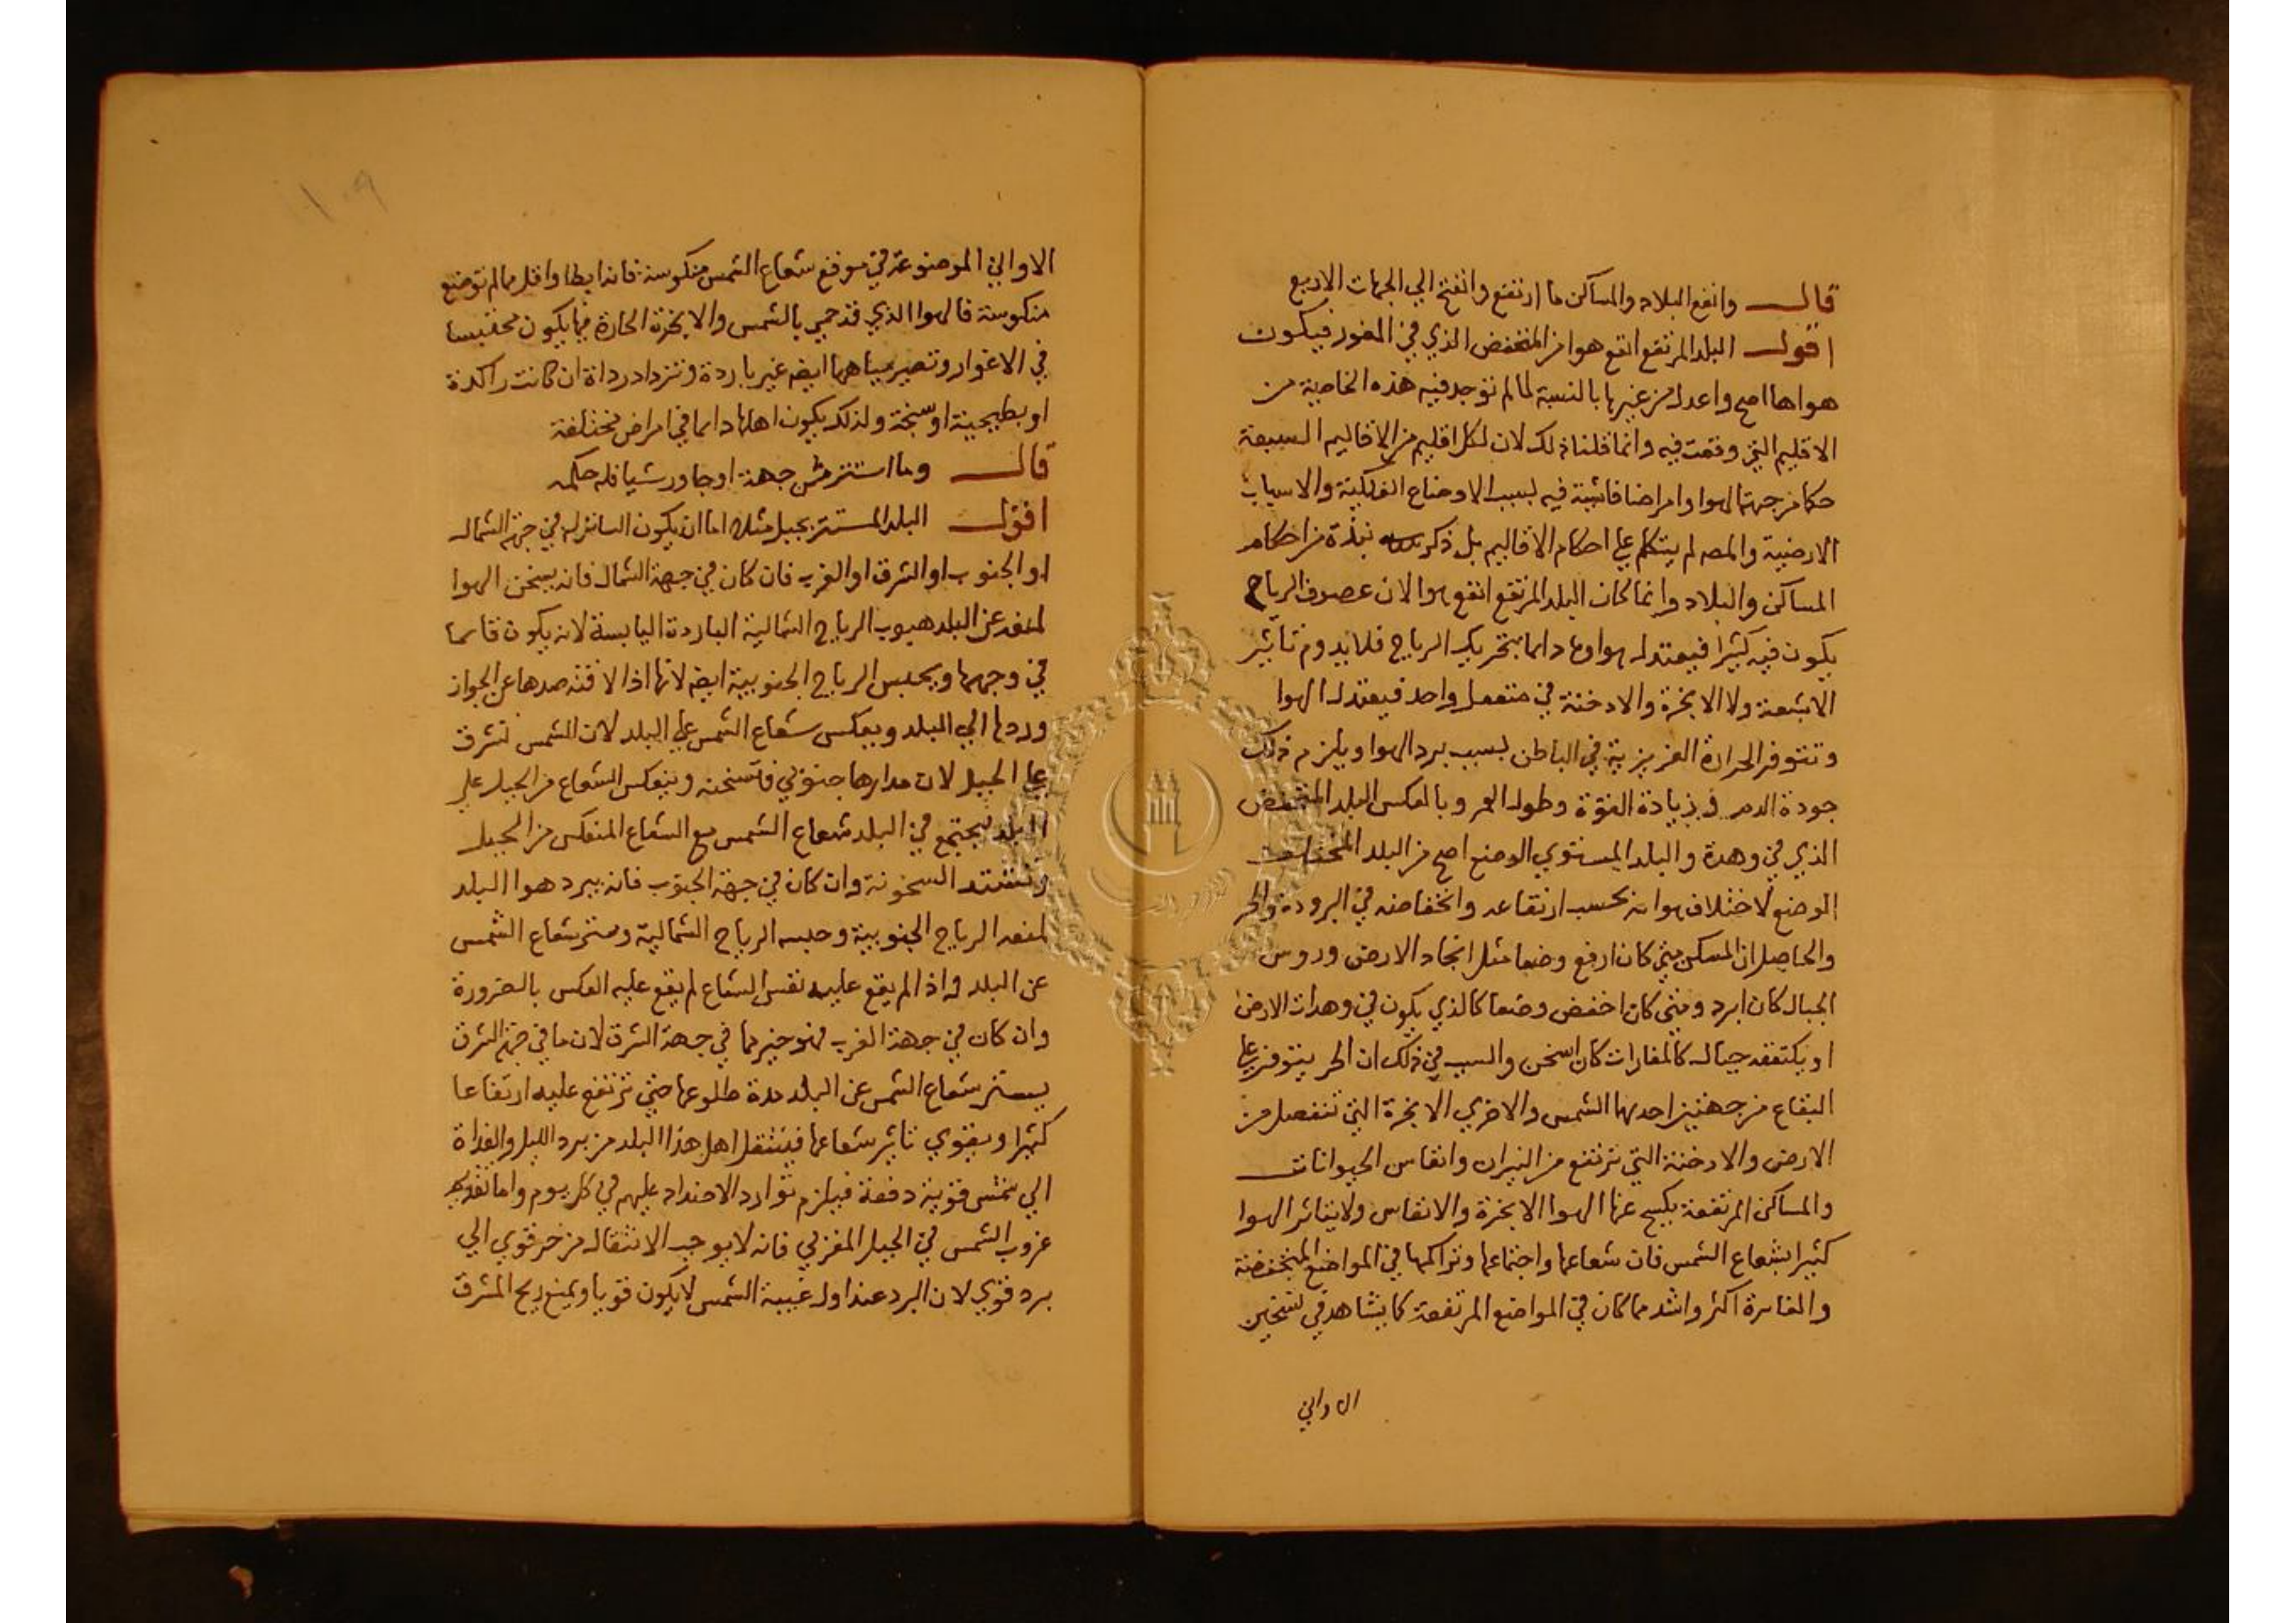 قال وانفع البلاد والمساكن ما ارتفع وانفتح الي الجهات الاربع
اقول البلد المرتفع انقع هوا من المنخفض الذي في الغور فيكون
هواها اصح واعدل من غيرها بالنسبة لما لم توجد فيه هذه الخاصية من
الاقليم التي وقعت فيه وانما قلنا ذلك لان لكل اقليم من الاقاليم السبعة
حكما من جهة الهوا وامراضا فاشية فيه بسبب الاوضاع الفلكية والاسباب
الارضية والمصـ لم يتكلم علي احكام الاقاليم بل ذكر نبذة من احكام
المساكن والبلاد وانما كان البلد المرتفع انفع هوا لان عصوف الرياح
يكون فيه كثيرا فيعتدل هواوها دايما بتحريك الرياح فلا يدوم تاثير
الاشعة ولا الابخرة والادخنة في منفعل واحد فيعتدل الهوا
وتتوفر الحرارة الغريزية في الباطن بسبب برد الهوا ويلزم ذلك
جودة الدم وزيادة القوة وطول العمر وبالعكس البلد المنخفض
الذي في وهدة والبلد المستوي الوضع اصح من البلد المختلف
الوضع لاختلاف هوائه بحسب ارتفاعه وانخفاضه في البرودة والحر
والحاصل ان المسكن متي كان ارفع وضعا مثل انجاد الارض وروس
الجبال كان ابرد ومتي كان اخفض وضعا كالذي يكون في وهدات الارض
او يكتنفه جبال كالمغارات كان اسخن والسبب في ذلك ان الحر يتوفر علي
البقاع من جهتين احديهما الشمس والاخري الابخرة التي تنفصل من
الارض والادخنة التي ترتفع من النيران وانفاس الحيوانات
والمساكن المرتفعة يكسح عنها الهوا الابخرة والانفاس ولا يتاثر الهوا
كثيرا بشعاع الشمس فان شعاعها واجتماعها وتراكمها في المواضع المنخفضة
والغايرة اكثر واشد مما كان في المواضع المرتفعة كما يشاهد في تسخين
الاواني
١٠٩
الاواني الموضوعة في موقع شعاع الشمس منكوسة فانه ابطا واقل مما لم توضع
منكوسة فالهوا الذي قد حمي بالشمس والابخرة الحارة فيها يكون محتبسا
في الاغوار وتصير مياهها ايضـ غير باردة وتزداد رداة ان كانت راكدة
او بطيحية او سبخة ولذلك يكون اهلها دايما في امراض مختلفة
قال وما استتر من جهة او جاور شيا فله حكمه
اقول البلد المستتر بجبل مثلا اما ان يكون الساتر له في جهة الشمال
او الجنوب او الشرق او الغرب فان كان في جهة الشمال فانه يسخن الهوا
لمنعه عن البلد هبوب الرياح الشمالية الباردة اليابسة لانه يكون قايما
في وجهها ويحبس الرياح الجنوبية ايضـ لانها اذا لاقته صدها عن الجواز
وردها الي البلد ويعكس شعاع الشمس علي البلد لان الشمس تشرق
علي الجبل لان مدارها جنوبي فتسخنه وينعكس الشعاع من الجبل علي
البلد فيجتمع في البلد شعاع الشمس مع الشعاع المنعكس من الجبل
وتشتد السخونة وان كان في جهة الجنوب فانه يبرد هوا البلد
لمنعه الرياح الجنوبية وحبسه الرياح الشمالية وستر شعاع الشمس
عن البلد واذا لم يقع عليه نفس الشعاع لم يقع عليه العكس بالضرورة
وان كان في جهة الغرب فهو خير مما في جهة الشرق لان ما في جهة الشرق
يستر شعاع الشمس عن البلد مدة طلوعها حتي ترتفع عليه ارتفاعا
كثيرا ويقوي تاثير شعاعها فينتقل اهل هذا البلد من برد الليل والغداة
الي شمس قوية دفعة فيلزم توارد الاضداد عليهم في كل يوم واما
غروب الشمس في الجبل المغربي فانه لا يوجب الانتقال من حر قوي الي
برد قوي لان البرد عند اول غيبة الشمس لا يكون قويا ويمنع ريح المشرق